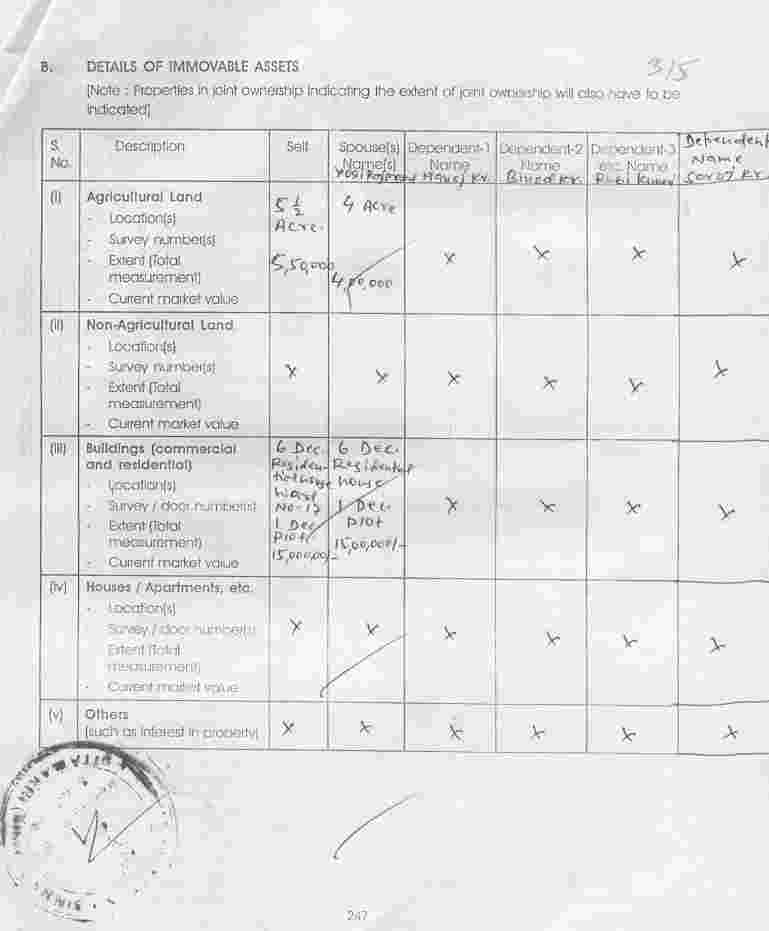 3/5
B. DETAILS OF IMMOVABLE ASSETS
[Note : Properties in joint ownership indicating the extent of joint ownership will also have to be
indicated]
S. No. Description Self Spouse(s) Name(s) Dependent-1 Name Manoj Kr. Dependent-2 Name Binod Kr. Dependent-3 etc. Name Dependent Name Saroj Kr.
(i) Agricultural Land 5 ½ Acre. 4 Acre
- Location(s)
- Survey number(s)
- Extent (Total 5,50,000 x x x x
measurement) 4,00,000
- Current market value
(ii) Non-Agricultural Land
- Location(s)
- Survey number(s) x x x x x x
- Extent (Total
measurement)
- Current market value
(iii) Buildings (commercial 6 Dec. 6 Dec.
and residential) Residential
- Location(s) house
- Survey / door number(s) No-17 1 Dec x x x x
- Extent (Total 1 Dec Plot
measurement) Plot 15,00,000/-
- Current market value 15,00,000/-
(iv) Houses / Apartments, etc.
- Location(s)
Survey / door number(s) x x x x x x
Extent (Total
measurement)
- Current market value
(v) Others
(such as interest in property) x x x x x x
247